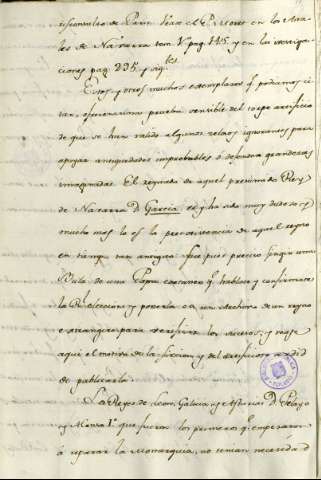 de Paris. Vease el P. en los Ana-
les de Navarra tom. V. pag. 145 y en las investiga-
ciones pag. 235 y sig.tes
Estos, y otros muchos exemplares q.e podrian ci-
tar, ofrecen una prueba sensible del torpe artificio
de que se han valido algunos zelosos ignorantes para
apoyar antiguedades improbables ó defender grandezas
imaginadas. El reynado de aquel previnado Rey
de Navarra D. Garcia es y ha sido muy dudoso y
mucho mas lo es la preexistencia de aquel reyno
en tiempo tan antiguo: fue pues preciso fingir una
Bula de un Papa coetaneo q.e hablase y confirmase
la R.l eleccion, y ponerla en un archivo de un reyno
extrangero para desfrutar los sucesos, y ve
aqui el motivo de la ficcion y del artificioso ardid
de publicarla.
Los Reyes de Leon, Galicia, y Asturias D. Pelayo
y Alonso I.o que fueron los primeros q.e empezaron
á reparar la Monarquia, no tenian necesidad